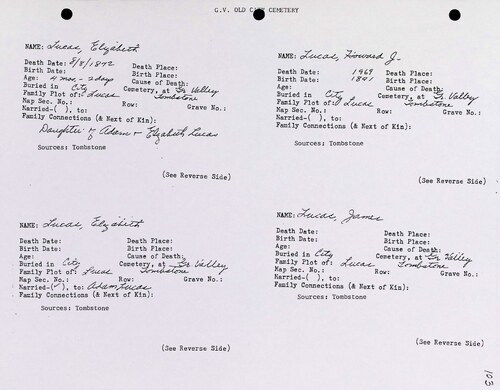 G.V. OLD CITY CEMETERY
NAME: Lucas, Elizabeth
Death Date: 8/8/1872 Death Place:
Birth Date: Birth Place:
Age: 4 mos. - 2 days Cause of Death:
Buried in City Cemetery, at Gr. Valley
Family Plot of: Lucas Tombstone
Map Sec. No.: Row: Grave No.:
Married-( ), to:
Family Connections (& Next of Kin):
Daughter of Adam + Elizabeth Lucas
Sources: Tombstone
(See Reverse Side)
NAME: Lucas, Howard J.
Death Date: 1969 Death Place:
Birth Date: 1891 Birth Place:
Age: Cause of Death:
Buried in City Cemetery, at Gr. Valley
Family Plot of: Lucas Tombstone
Map Sec. No.: Row: Grave No.:
Married-( ), to:
Family Connections (& Next of Kin):
Sources: Tombstone
(See Reverse Side)
NAME: Lucas, Elizabeth
Death Date: Death Place:
Birth Date: Birth Place:
Age: Cause of Death:
Buried in City Cemetery, at Gr. Valley
Family Plot of: Lucas Tombstone
Map Sec. No.: Row: Grave No.:
Married-(✓), to: Adam Lucas
Family Connections (& Next of Kin):
Sources: Tombstone
(See Reverse Side)
NAME: Lucas, James
Death Date: Death Place:
Birth Date: Birth Place:
Age: Cause of Death:
Buried in City Cemetery, at Gr. Valley
Family Plot of: Lucas Tombstone
Map Sec. No.: Row: Grave No.:
Married-( ), to:
Family Connections (& Next of Kin):
Sources: Tombstone
(See Reverse Side)
103